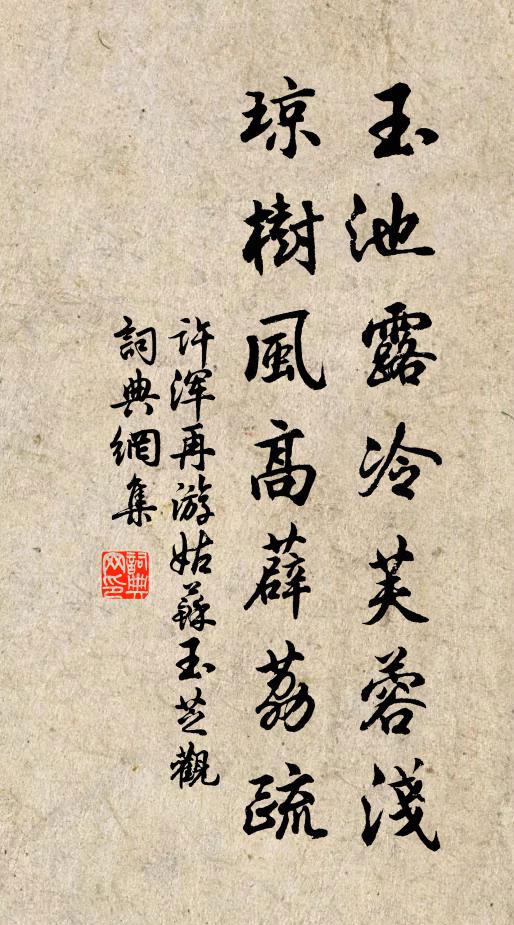 玉池露冷芙蓉淺
琼樹風高薜荔疏
许浑再游姑蘇玉芝觀
詞典網集
詞典网印